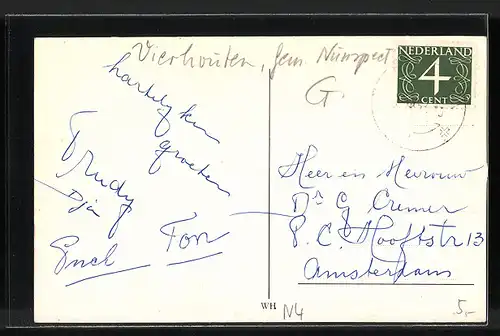 Vierhouten, Gem. Nunspeet
G.
NEDERLAND
4
CENT
hartelyken
groeten
Trudy
Fon
Heer en Mevrouw
Ds G Cremer
P. C. Hooftstr 13
Amsterdam
WH
N4
5,-